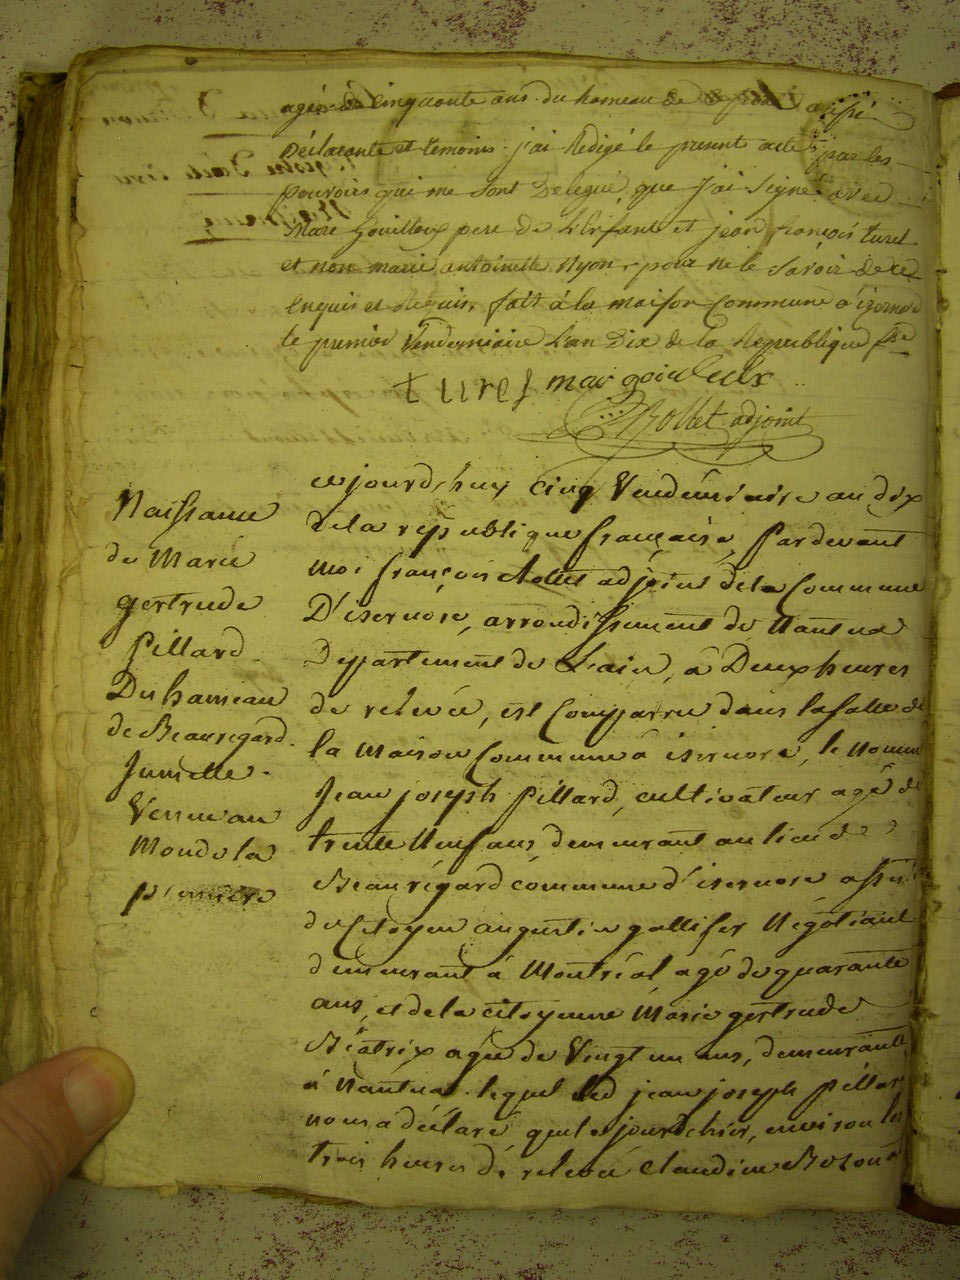 agée de Cinquante ans du hameau de
Déclarante et temoins j'ai Redigé le present acte par les
pouvoirs qui me sont Delegué, que J'ai Signé avec
Marc Gouilloux pere de L'Enfant et jean françois turel
et non marie antoinette Nyon pour ne le Savoir de ce
Enquis et Requis, fait à la maison Commune d'izernore
le premier Vendemiaire L'an Dix de la Republique fse
turel marc goiuleux
Rollet adjoint
Naissance
de Marie
gertrude
Pillard
Du hameau
de Beauregard.
Jumelle.
Venue au
Monde la
première
cejourd'huy cinq Vendémiaire an dix
de la république française, Pardevant
Moi françois Rollet adjoint de la Commune
D'isernore, arrondissement de Nantua
Département de L'ain, à Deux heures
de relevée, est Comparu dans la Salle de
la Maison Commune à isernore, le Nommé
Jean joseph Pillard, cultivateur agé de
trente Neuf ans, demeurant au lieu de
Beauregard commune d'isernore assisté
du Citoyen augustin gallifer Négotiant
demeurant à Montréal agé de quarante
ans, et de la citoyenne Marie gertrude
Béatrix agée de Vingt un ans, demeurante
à Nantua. lequel led jean joseph Pillard
nous a déclaré que le jourd'hier, environ les
trois heures de relevée Claudine